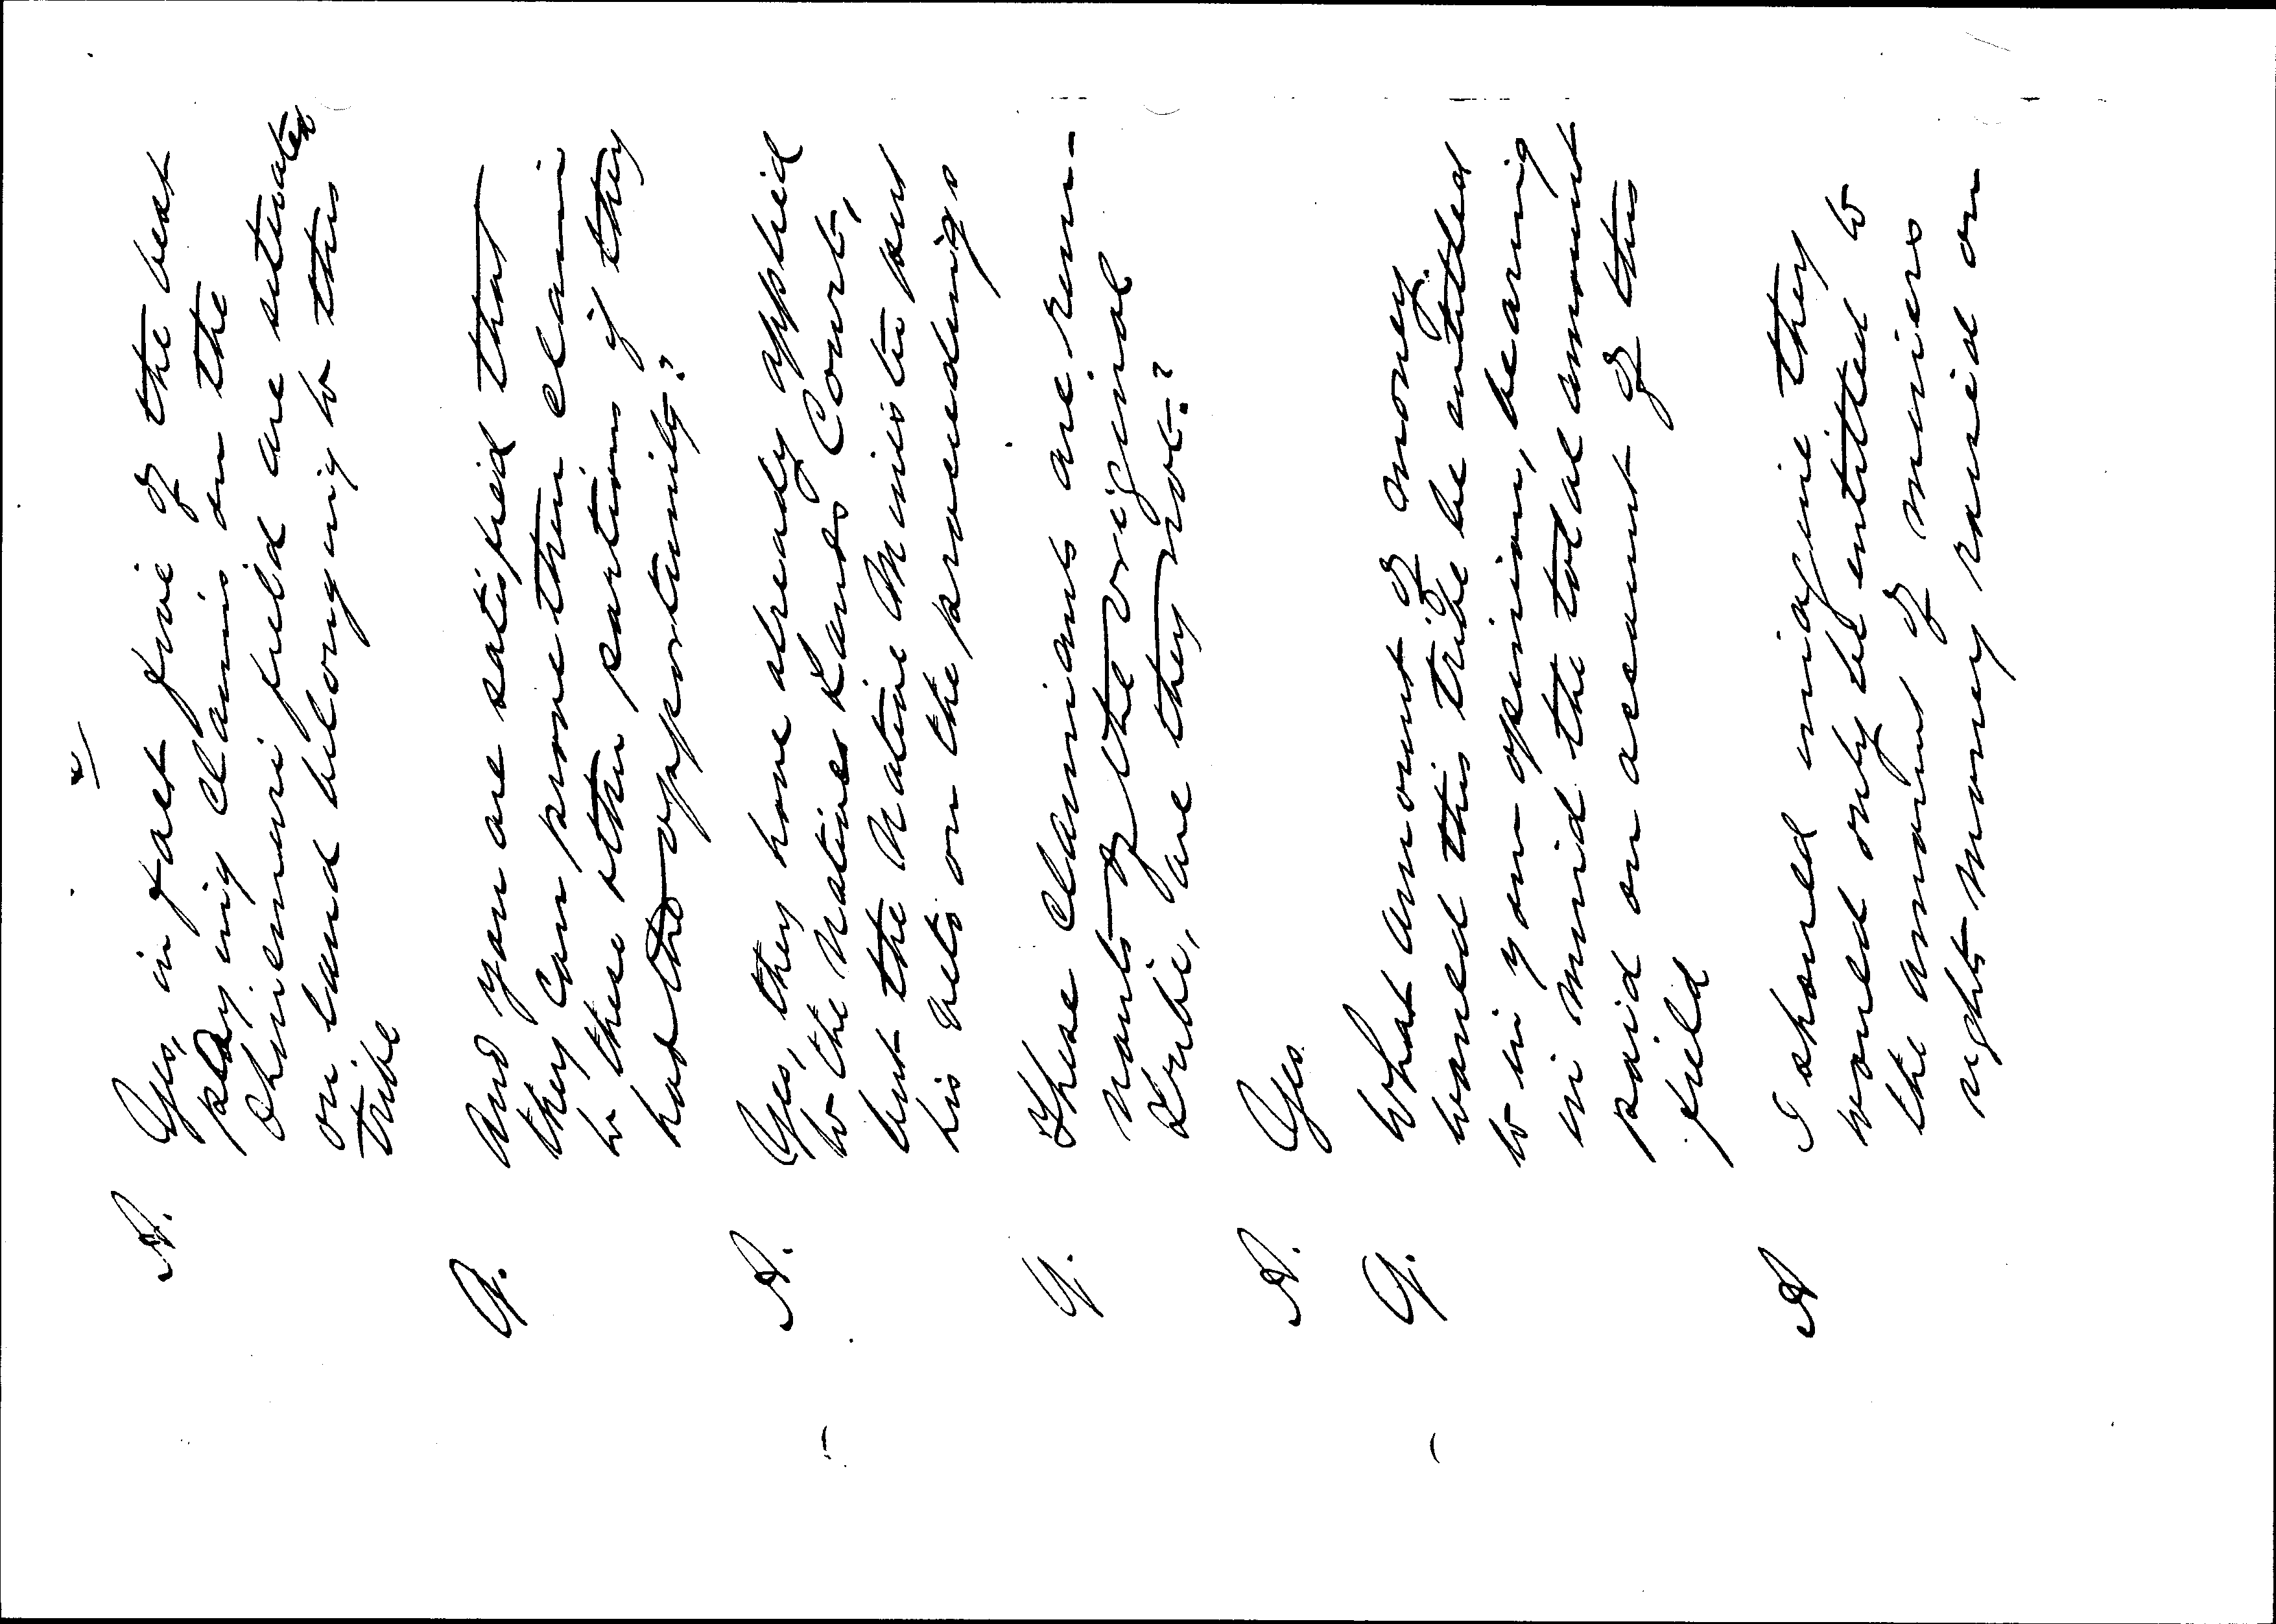 4/
A. Yes, in fact five of the best
paying claims on the
Ohinemuri field are situated
on land belonging to this
tribe
Q. And you are satisfied that
they can prove their claim
to these other portions if they
had the opportunity?
A. Yes, they have already applied
to the Natives Lands Court,
but the Native Minister put
his veto on the proceedings
Q. These claimants are rem-
nants of the original
tribe, are they not?
A. Yes.
Q. What amount of money
would this tribe be entitled
to in your opinion, bearing
in mind the total amount
paid on account of this
field
A I should imagine they
would only be entitled to
the amount of miners
rights money raised on